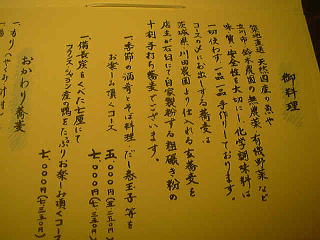 御料理
築地直送 天然国産の魚や
立川市 鈴木農園の無農薬、有機野菜など
味、質、安全性を大切にし、化学調味料は
一切使わず、一品一品手作りしております。
コースの〆にお出しする蕎麦は
茨城県 川田農園より仕れる玄蕎麦を
店主が石臼にて自家製粉する粗碾き粉の
十割手打ち蕎麦でございます。
一、季節の酒肴とそば料理、だし巻玉子等を
お楽しみ頂くコース
五、〇〇〇円
七、〇〇〇円
一、備長炭をくべた七厘にて
フランス シャロン産の鴨をたっぷりお楽しみ頂くコース
七、〇〇〇円
おかわり蕎麦
一、もり